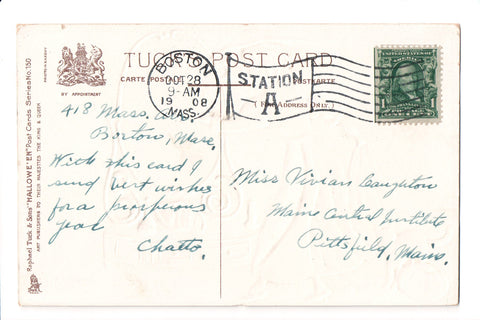 TUCK POST CARD
CARTE POSTALE
BY APPOINTMENT
(For Address Only.)
BOSTON
OCT 28
9-AM
1908
MASS.
STATION
A
1
418 Mass.
Boston, Mass,
With this card I
send best wishes
for a prosperous
year
Chatto.
Miss Vivian
Maine Central Institute
Pittsfield, Maine.
Raphael Tuck & Sons' "HALLOWE'EN" Post Cards Series No. 150
ART PUBLISHERS TO THEIR MAJESTIES THE KING & QUEEN